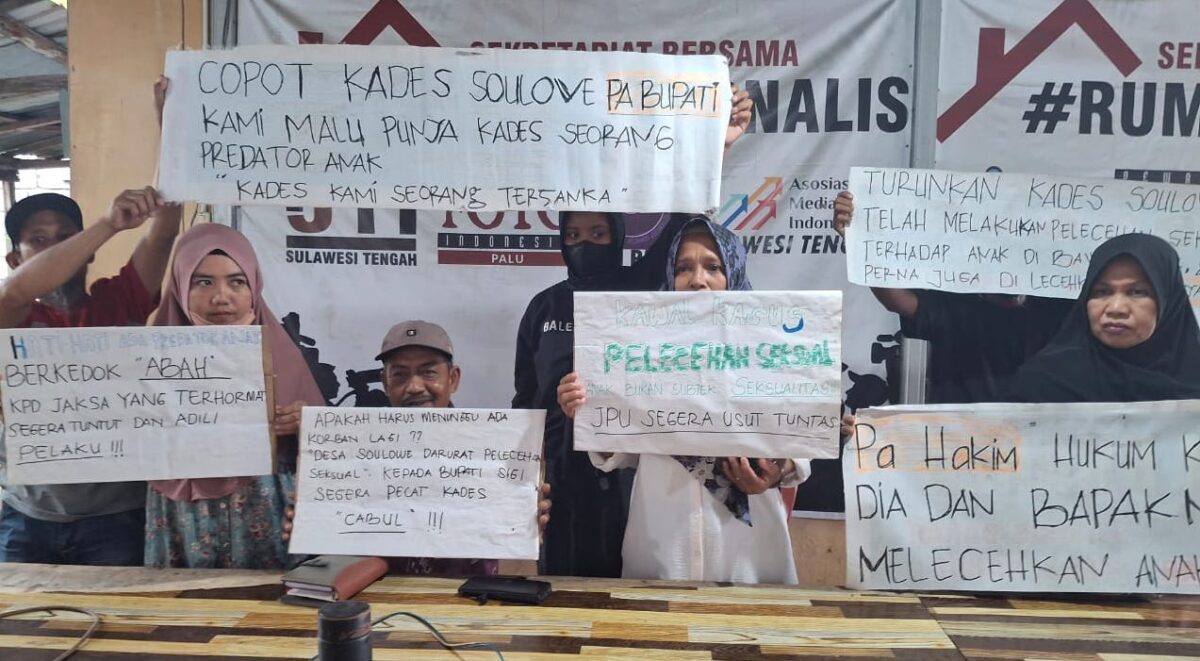 SEKRETARIAT BERSAMA
NALIS
SULAWESI TENGAH
FOTO
INDONESIA
PALU
Asosias
Media
Indone
WESI TENG
#RUM
COPOT KADES SOULOWE PA BUPATI
KAMI MALU PUNJA KADES SEORANG
PREDATOR ANAK
"KADES KAMI SEORANG TERSANKA"
TURUNKAN KADES SOULO
TELAH MELAKUKAN PELECEHAN SEK
TERHADAP ANAK DI BA
PERNA JUGA DI LECEH
HATI-HATI ADA PREDATOR ANAK
BERKEDOK "ABAH"
KPD JAKSA YANG TERHORMAT
SEGERA TUNTUT DAN ADILI
PELAKU !!!
APAKAH HARUS MENUNGGU ADA
KORBAN LAGI ??
"DESA SOULOWE DARURAT PELECEHA
SEKSUAL". KEPADA BUPATI SIGI
SEGERA PECAT KADES
"CABUL" !!!
BALE
KAWAL KASUS
PELECEHAN SEKSUAL
ANAK BUKAN SUBJEK SEKSUALITAS!!
JPU SEGERA USUT TUNTAS
Pa Hakim "HUKUM K
DIA DAN BAPAK
MELECEHKAN ANAK